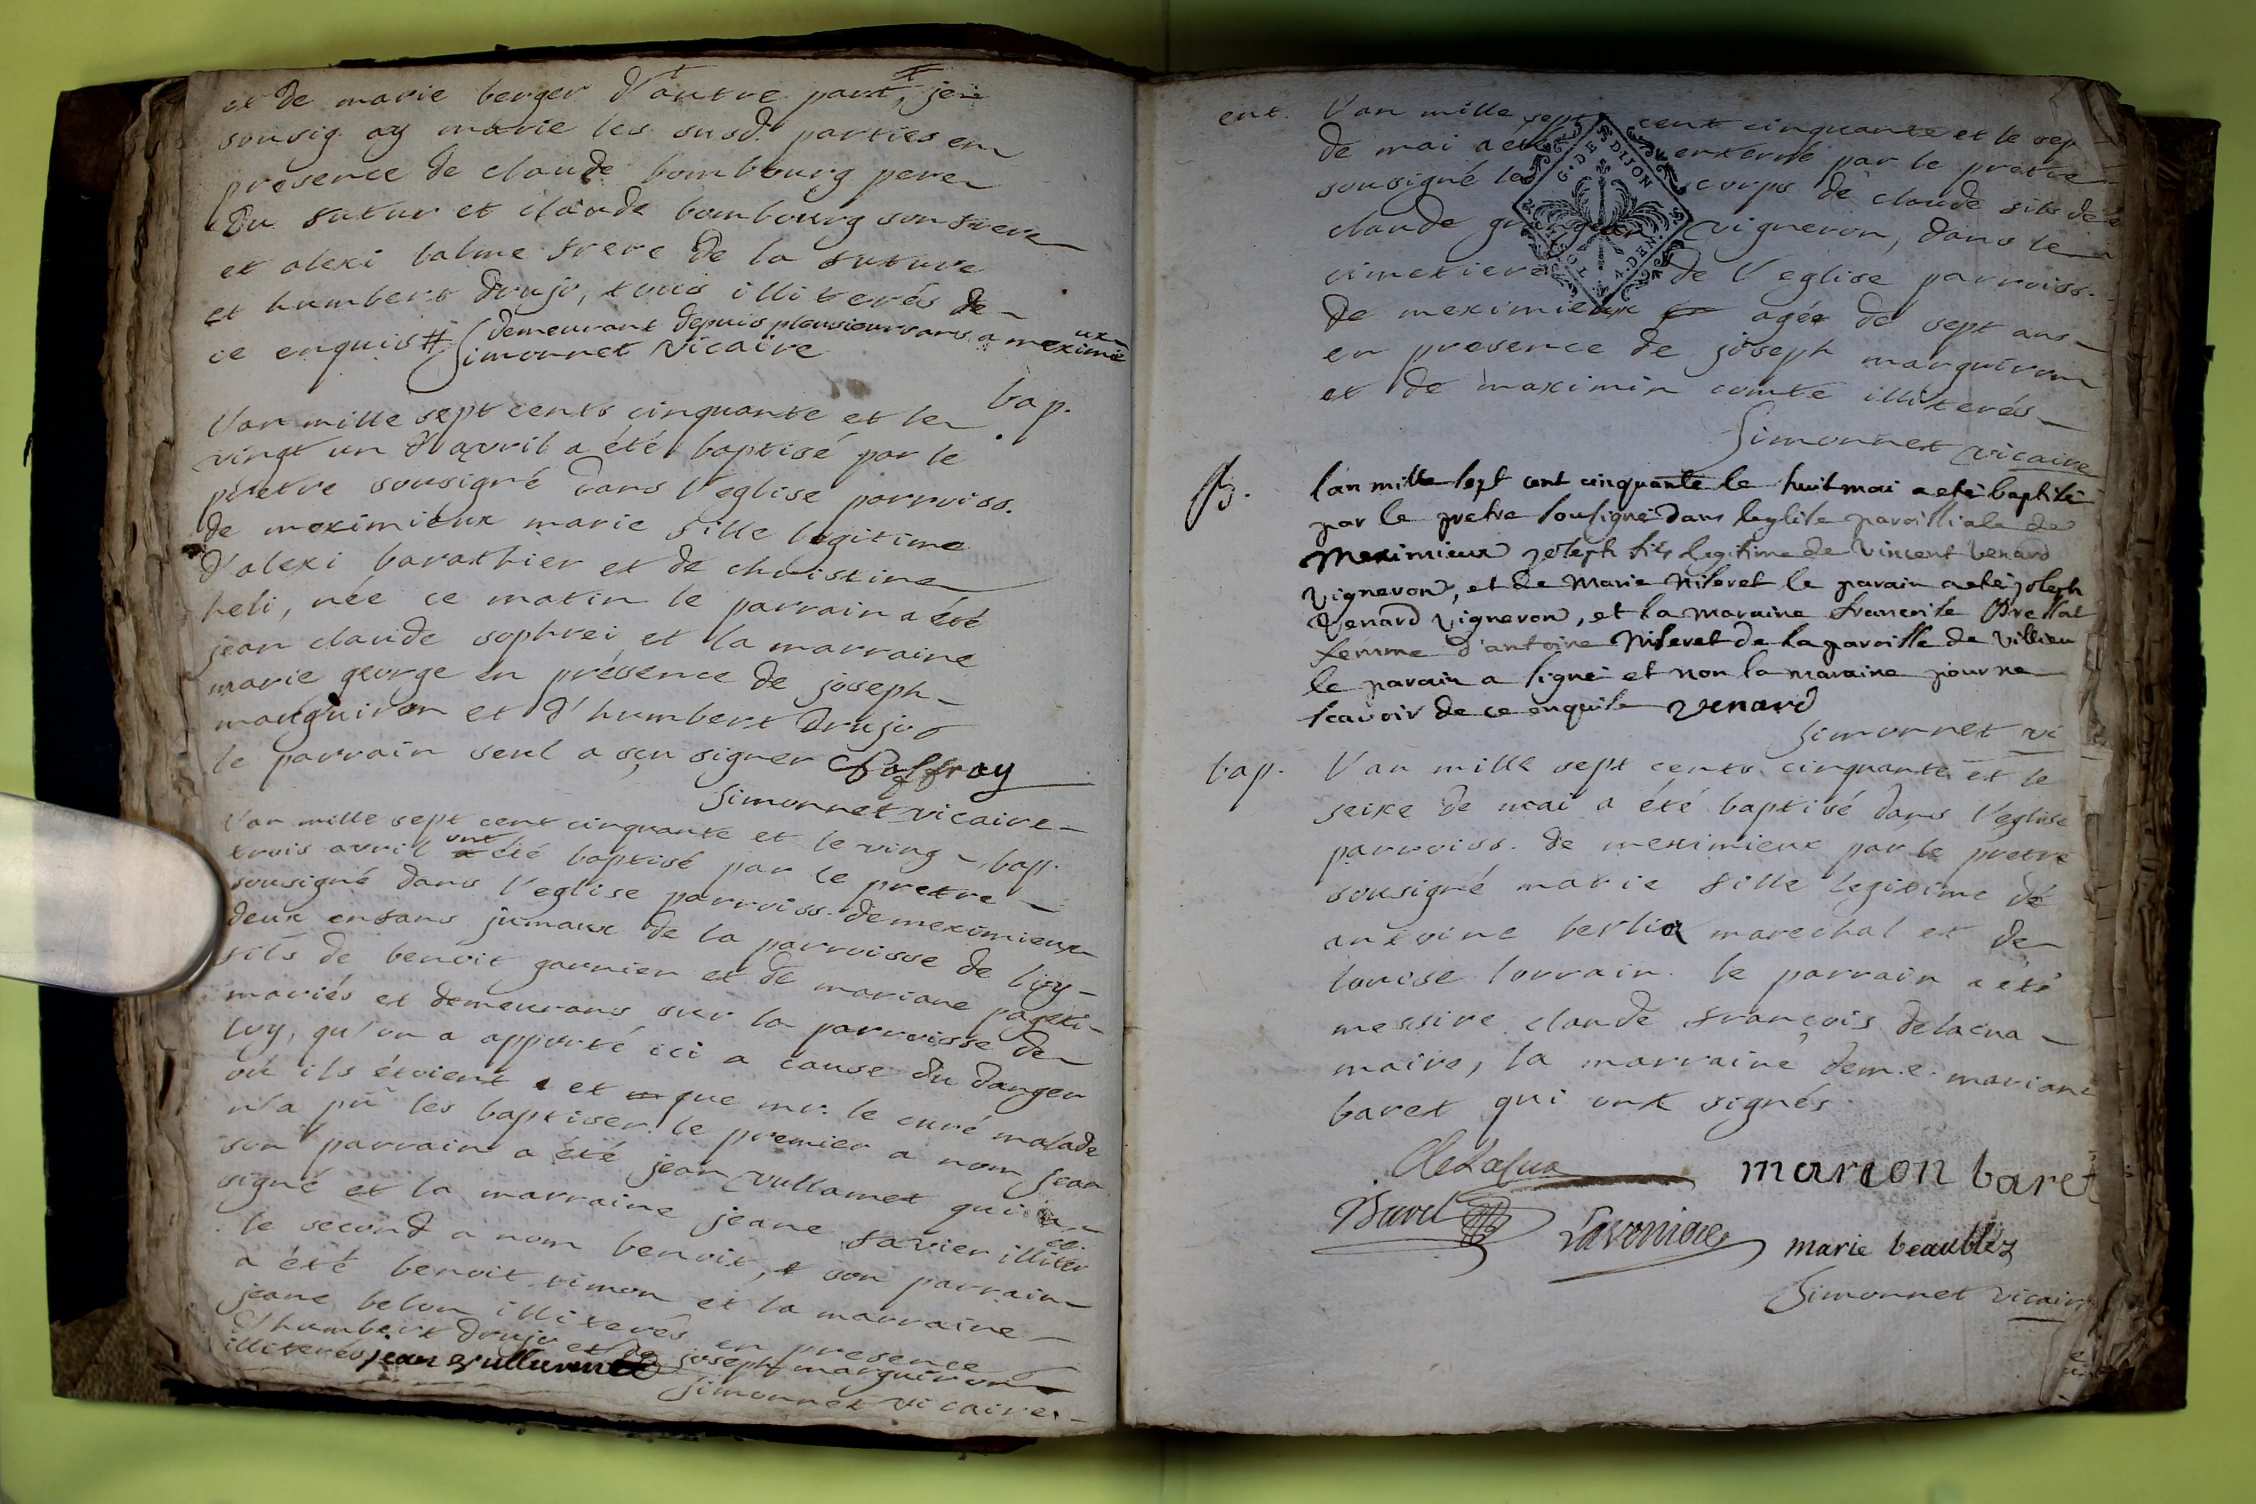 et de marie berger d'autre part, je
sousig. ay marié les susd. parties en
presence de claude bombourg pere
du futur et claude bombourg son frere
et alexi balme frere de la future
et humbert drujo, tous illiterés de
ce enquis # demeurant depuis plousieurs ans a meximieux
Simonnet vicaire
bap.
l'an mille sept cents cinquante et le
vingt un d'avril a été baptisé par le
pretre sousigné dans l'eglise parroiss.
de meximieux marie fille legitime
d'alexi barathier et de christine
heli, née ce matin le parrain a été
jean claude sophrei et la marraine
marie george en présence de joseph
marguiron et d'humbert drujo
le parrain seul a sçu signer
Simonnet vicaire
l'an mille sept cent cinquante et le ving bap.
trois avril ont été baptisé par le pretre
sousigné dans l'eglise parroiss. de meximieux
deux enfans jumaux de la parroisse de loy
fils de benoit garnier et de mariane
mariés et demeurans sur la parroisse de
loy, qu'on a apporté ici a cause du danger
où ils étoient et que mr. le curé malade
n'a pû les baptiser. le premier a nom jean
son parrain a été jean vullamet qui a
signé et la marraine jeane favier illiter
le second a nom benoit, son parrain
a été benoit timon et la marraine
jeane belon illiterés en presence
d'humbert drujo et de joseph marguiron
illiterés jean vullumet
Simonnet vicaire
ent. l'an mille sept cent cinquante et le sep
de mai a eté enterré par le pretre
sousigné le corps de claude fils de
claude vigneron, dans le
cimetiere de l'eglise parroiss.
de meximieux agée de sept ans
en presence de joseph marguiron
et de maximin comte illiterés
Simonnet vicaire
B. l'an mille sept cent cinquante le huit mai a eté baptisé
par le pretre sousigné dans l'eglise paroissiale de
Meximieux joseph fils legitime de vincent venard
vigneron, et de Marie Niseret le parain a eté joseph
venard vigneron, et la maraine francoise Bressat
femme d'antoine Niseret de la paroisse de villieu
le parain a signé et non la maraine pour ne
scavoir de ce enquise venard
Simonnet vi
bap. l'an mille sept cents cinquante et le
seixe de mai a été baptisé dans l'eglise
parroiss. de meximieux par le pretre
sousigné marie fille legitime de
antoine berlia marechal et de
louise lorrain. le parrain a été
messire claude françois delacua
maire, la marraine dem.e. mariane
baret qui ont signés
Delacua marion baret
marie beaublez
Simonnet vicaire